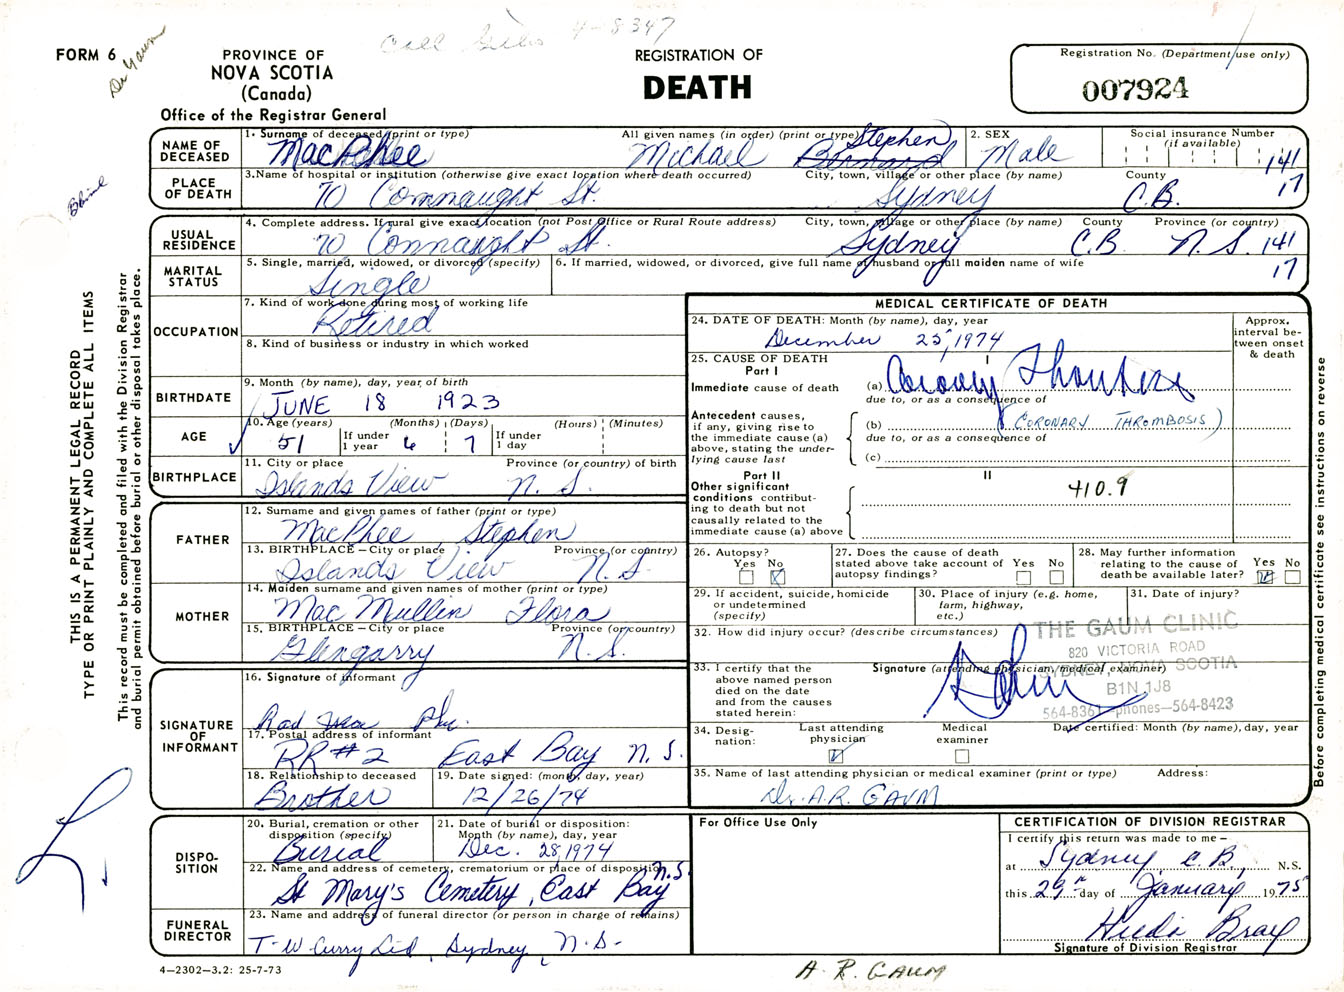 Call 4-8347
FORM 6
Dr Gaum
PROVINCE OF
NOVA SCOTIA
(Canada)
Office of the Registrar General
REGISTRATION OF
DEATH
Registration No. (Department use only)
007924
NAME OF DECEASED
1. Surname of deceased (print or type) All given names (in order) (print or type)
MacPhee Michael Bernard Stephen
2. SEX
Male
Social insurance Number
(if available)
141
17
PLACE OF DEATH
3. Name of hospital or institution (otherwise give exact location where death occurred) City, town, village or other place (by name) County
70 Connaught St. Sydney C.B.
USUAL RESIDENCE
4. Complete address. If rural give exact location (not Post Office or Rural Route address) City, town, village or other place (by name) County Province (or country)
70 Connaught St. Sydney C.B. N.S. 141
17
MARITAL STATUS
5. Single, married, widowed, or divorced (specify)
Single
6. If married, widowed, or divorced, give full name of husband or full maiden name of wife
OCCUPATION
7. Kind of work done during most of working life
Retired
8. Kind of business or industry in which worked
BIRTHDATE
9. Month (by name), day, year, of birth
JUNE 18 1923
AGE
10. Age (years) (Months) (Days) (Hours) (Minutes)
51 If under 1 year 6 7 If under 1 day
BIRTHPLACE
11. City or place Province (or country) of birth
Islands View N.S.
FATHER
12. Surname and given names of father (print or type)
MacPhee Stephen
13. BIRTHPLACE — City or place Province (or country)
Islands View N.S.
MOTHER
14. Maiden surname and given names of mother (print or type)
MacMullin Flora
15. BIRTHPLACE — City or place Province (or country)
Glengarry N.S.
SIGNATURE OF INFORMANT
16. Signature of informant
Rod
17. Postal address of informant
RR#2 East Bay N.S.
18. Relationship to deceased
Brother
19. Date signed: (month, day, year)
12/26/74
DISPO-
SITION
20. Burial, cremation or other
disposition (specify)
Burial
21. Date of burial or disposition:
Month (by name), day, year
Dec. 28, 1974
22. Name and address of cemetery, crematorium or place of disposition
St Mary's Cemetery, East Bay N.S.
FUNERAL DIRECTOR
23. Name and address of funeral director (or person in charge of remains)
T.W. Curry Ltd, Sydney, N.S.
4—2302—3.2: 25-7-73
MEDICAL CERTIFICATE OF DEATH
24. DATE OF DEATH: Month (by name), day, year
December 25, 1974
Approx.
interval be-
tween onset
& death
25. CAUSE OF DEATH
Part I
I
Immediate cause of death
(a) Coronary Thrombosis
due to, or as a consequence of
Antecedent causes,
if any, giving rise to
the immediate cause (a)
above, stating the under-
lying cause last
(b) (CORONARY THROMBOSIS)
due to, or as a consequence of
(c)
Part II
II
Other significant
conditions contribut-
ing to death but not
causally related to the
immediate cause (a) above
410.9
26. Autopsy?
Yes No
27. Does the cause of death
stated above take account of
autopsy findings?
Yes No
28. May further information
relating to the cause of
death be available later?
Yes No
29. If accident, suicide, homicide
or undetermined
(specify)
30. Place of injury (e.g. home,
farm, highway,
etc.)
31. Date of injury?
32. How did injury occur? (describe circumstances)
THE GAUM CLINIC
820 VICTORIA ROAD
SYDNEY, NOVA SCOTIA
B1N 1J8
564-8361—phones—564-8423
33. I certify that the
above named person
died on the date
and from the causes
stated herein:
Signature (attending physician/medical examiner)
34. Desig-
nation:
Last attending
physician
Medical
examiner
Date certified: Month (by name), day, year
35. Name of last attending physician or medical examiner (print or type) Address:
Dr. A.R. GAUM
For Office Use Only
CERTIFICATION OF DIVISION REGISTRAR
I certify this return was made to me —
at Sydney C.B., N.S.
this 29th day of January 1975
Hilda Bray
Signature of Division Registrar
A. R. GAUM
THIS IS A PERMANENT LEGAL RECORD
TYPE OR PRINT PLAINLY AND COMPLETE ALL ITEMS
This record must be completed and filed with the Division Registrar
and burial permit obtained before burial or other disposal takes place.
Before completing medical certificate see instructions on reverse